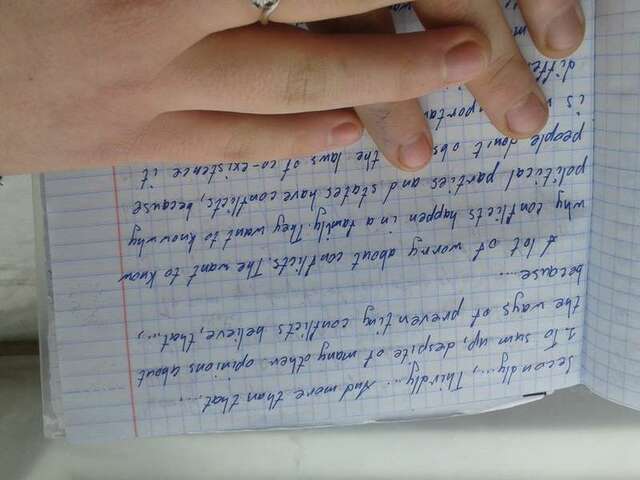 Secondly..., Thirdly... And more than that...,
1. To sum up, despite of many other opinions about
the ways of preventing conflicts believe, that...,
because ....
A lot of worry about conflicts. The want to know
why conflicts happen in a family. They want to know why
political parties and states have conflicts, because
people don't obs the laws of co-existence it
is
diffe